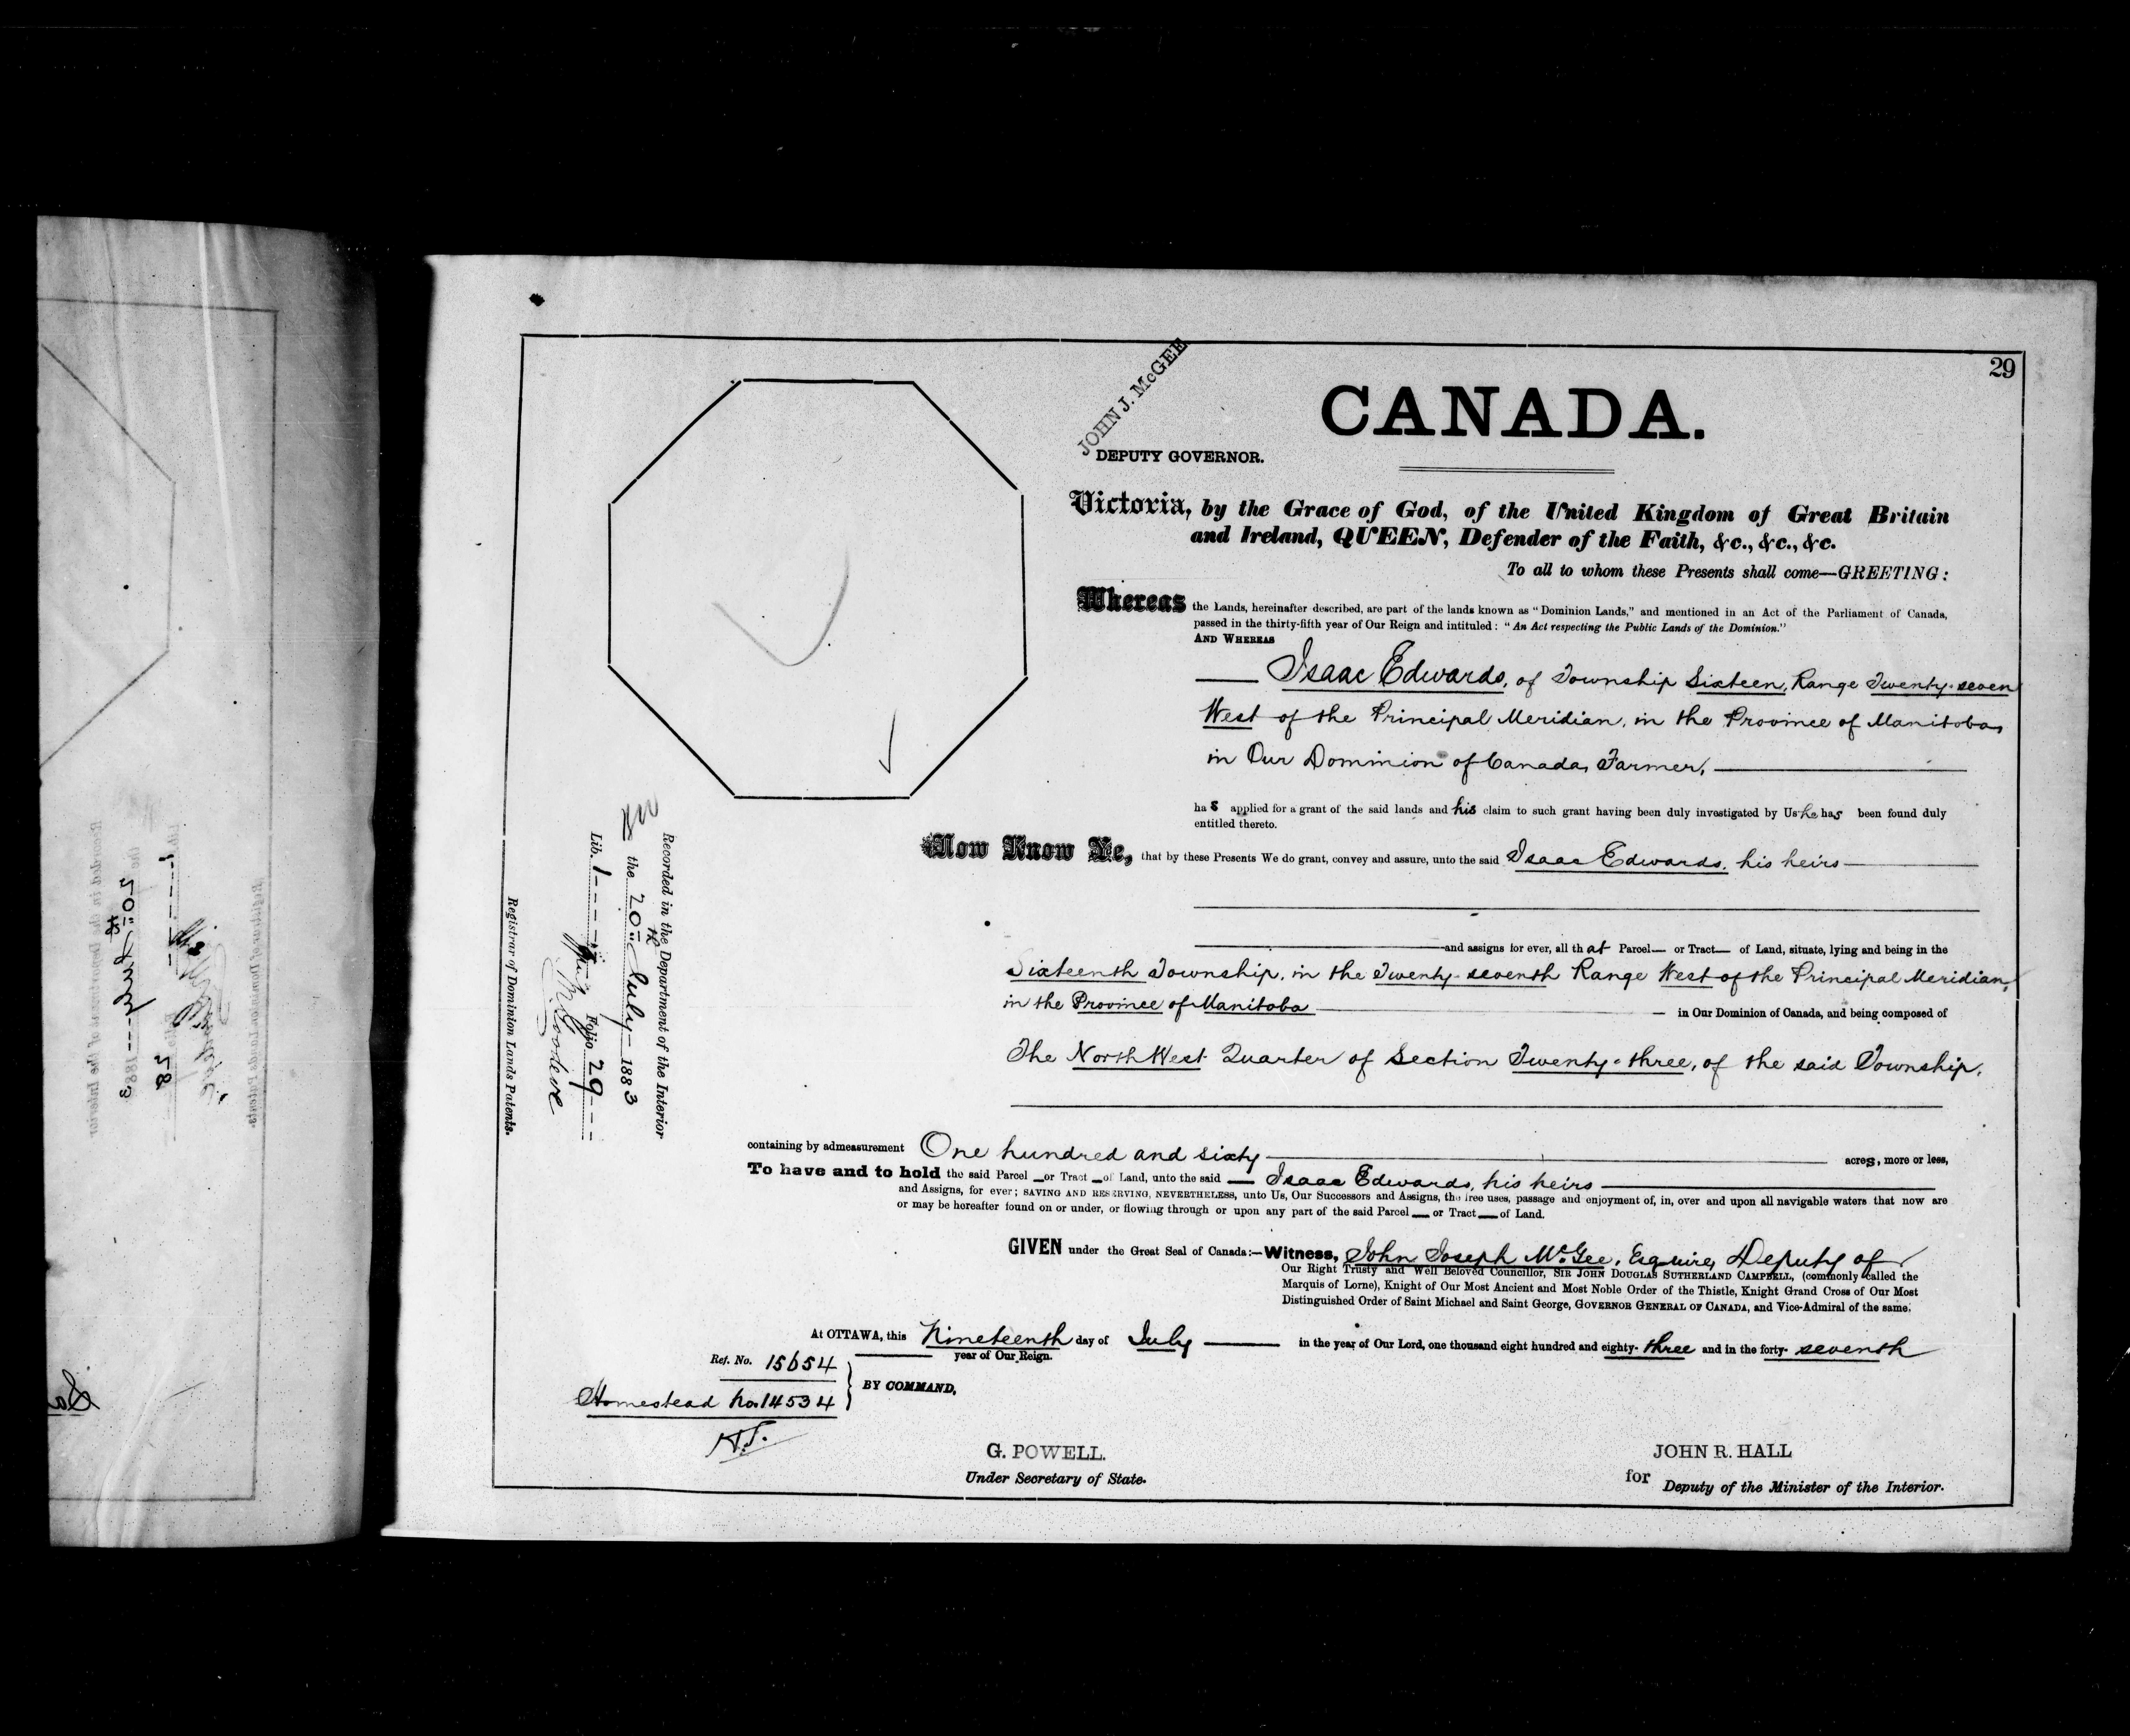 29
JOHN J. McGEE
DEPUTY GOVERNOR.
CANADA.
Victoria, by the Grace of God, of the United Kingdom of Great Britain
and Ireland, QUEEN, Defender of the Faith, &c., &c., &c.
To all to whom these Presents shall come—GREETING:
Whereas the Lands, hereinafter described, are part of the lands known as "Dominion Lands," and mentioned in an Act of the Parliament of Canada,
passed in the thirty-fifth year of Our Reign and intituled: "An Act respecting the Public Lands of the Dominion."
AND WHEREAS
Isaac Edwards, of Township Sixteen, Range Twenty-seven
West of the Principal Meridian, in the Province of Manitoba,
in Our Dominion of Canada, Farmer,
has applied for a grant of the said lands and his claim to such grant having been duly investigated by Us he has been found duly
entitled thereto.
Now Know Ye, that by these Presents We do grant, convey and assure, unto the said Isaac Edwards, his heirs
and assigns for ever, all that Parcel— or Tract— of Land, situate, lying and being in the
Sixteenth Township, in the Twenty-seventh Range West of the Principal Meridian,
in the Province of Manitoba — in Our Dominion of Canada, and being composed of
The North West Quarter of Section Twenty-three, of the said Township.
containing by admeasurement One hundred and sixty acres, more or less,
To have and to hold the said Parcel or Tract of Land, unto the said — Isaac Edwards, his heirs
and Assigns, for ever; SAVING AND RESERVING, NEVERTHELESS, unto Us, Our Successors and Assigns, the free uses, passage and enjoyment of, in, over and upon all navigable waters that now are
or may be hereafter found on or under, or flowing through or upon any part of the said Parcel — or Tract — of Land.
GIVEN under the Great Seal of Canada:—Witness, John Joseph McGee, Esquire, Deputy of
Our Right Trusty and Well Beloved Councillor, SIR JOHN DOUGLAS SUTHERLAND CAMPBELL, (commonly called the
Marquis of Lorne), Knight of Our Most Ancient and Most Noble Order of the Thistle, Knight Grand Cross of Our Most
Distinguished Order of Saint Michael and Saint George, GOVERNOR GENERAL OF CANADA, and Vice-Admiral of the same.
At OTTAWA, this Nineteenth day of July — in the year of Our Lord, one thousand eight hundred and eighty-three and in the forty-seventh
year of Our Reign.
Ref. No. 15654
Homestead No. 14534
BY COMMAND,
G. POWELL.
Under Secretary of State.
JOHN R. HALL
for Deputy of the Minister of the Interior.
Recorded in the Department of the Interior
the 20th July 1883
Lib. 1 Folio 29
Registrar of Dominion Lands Patents.